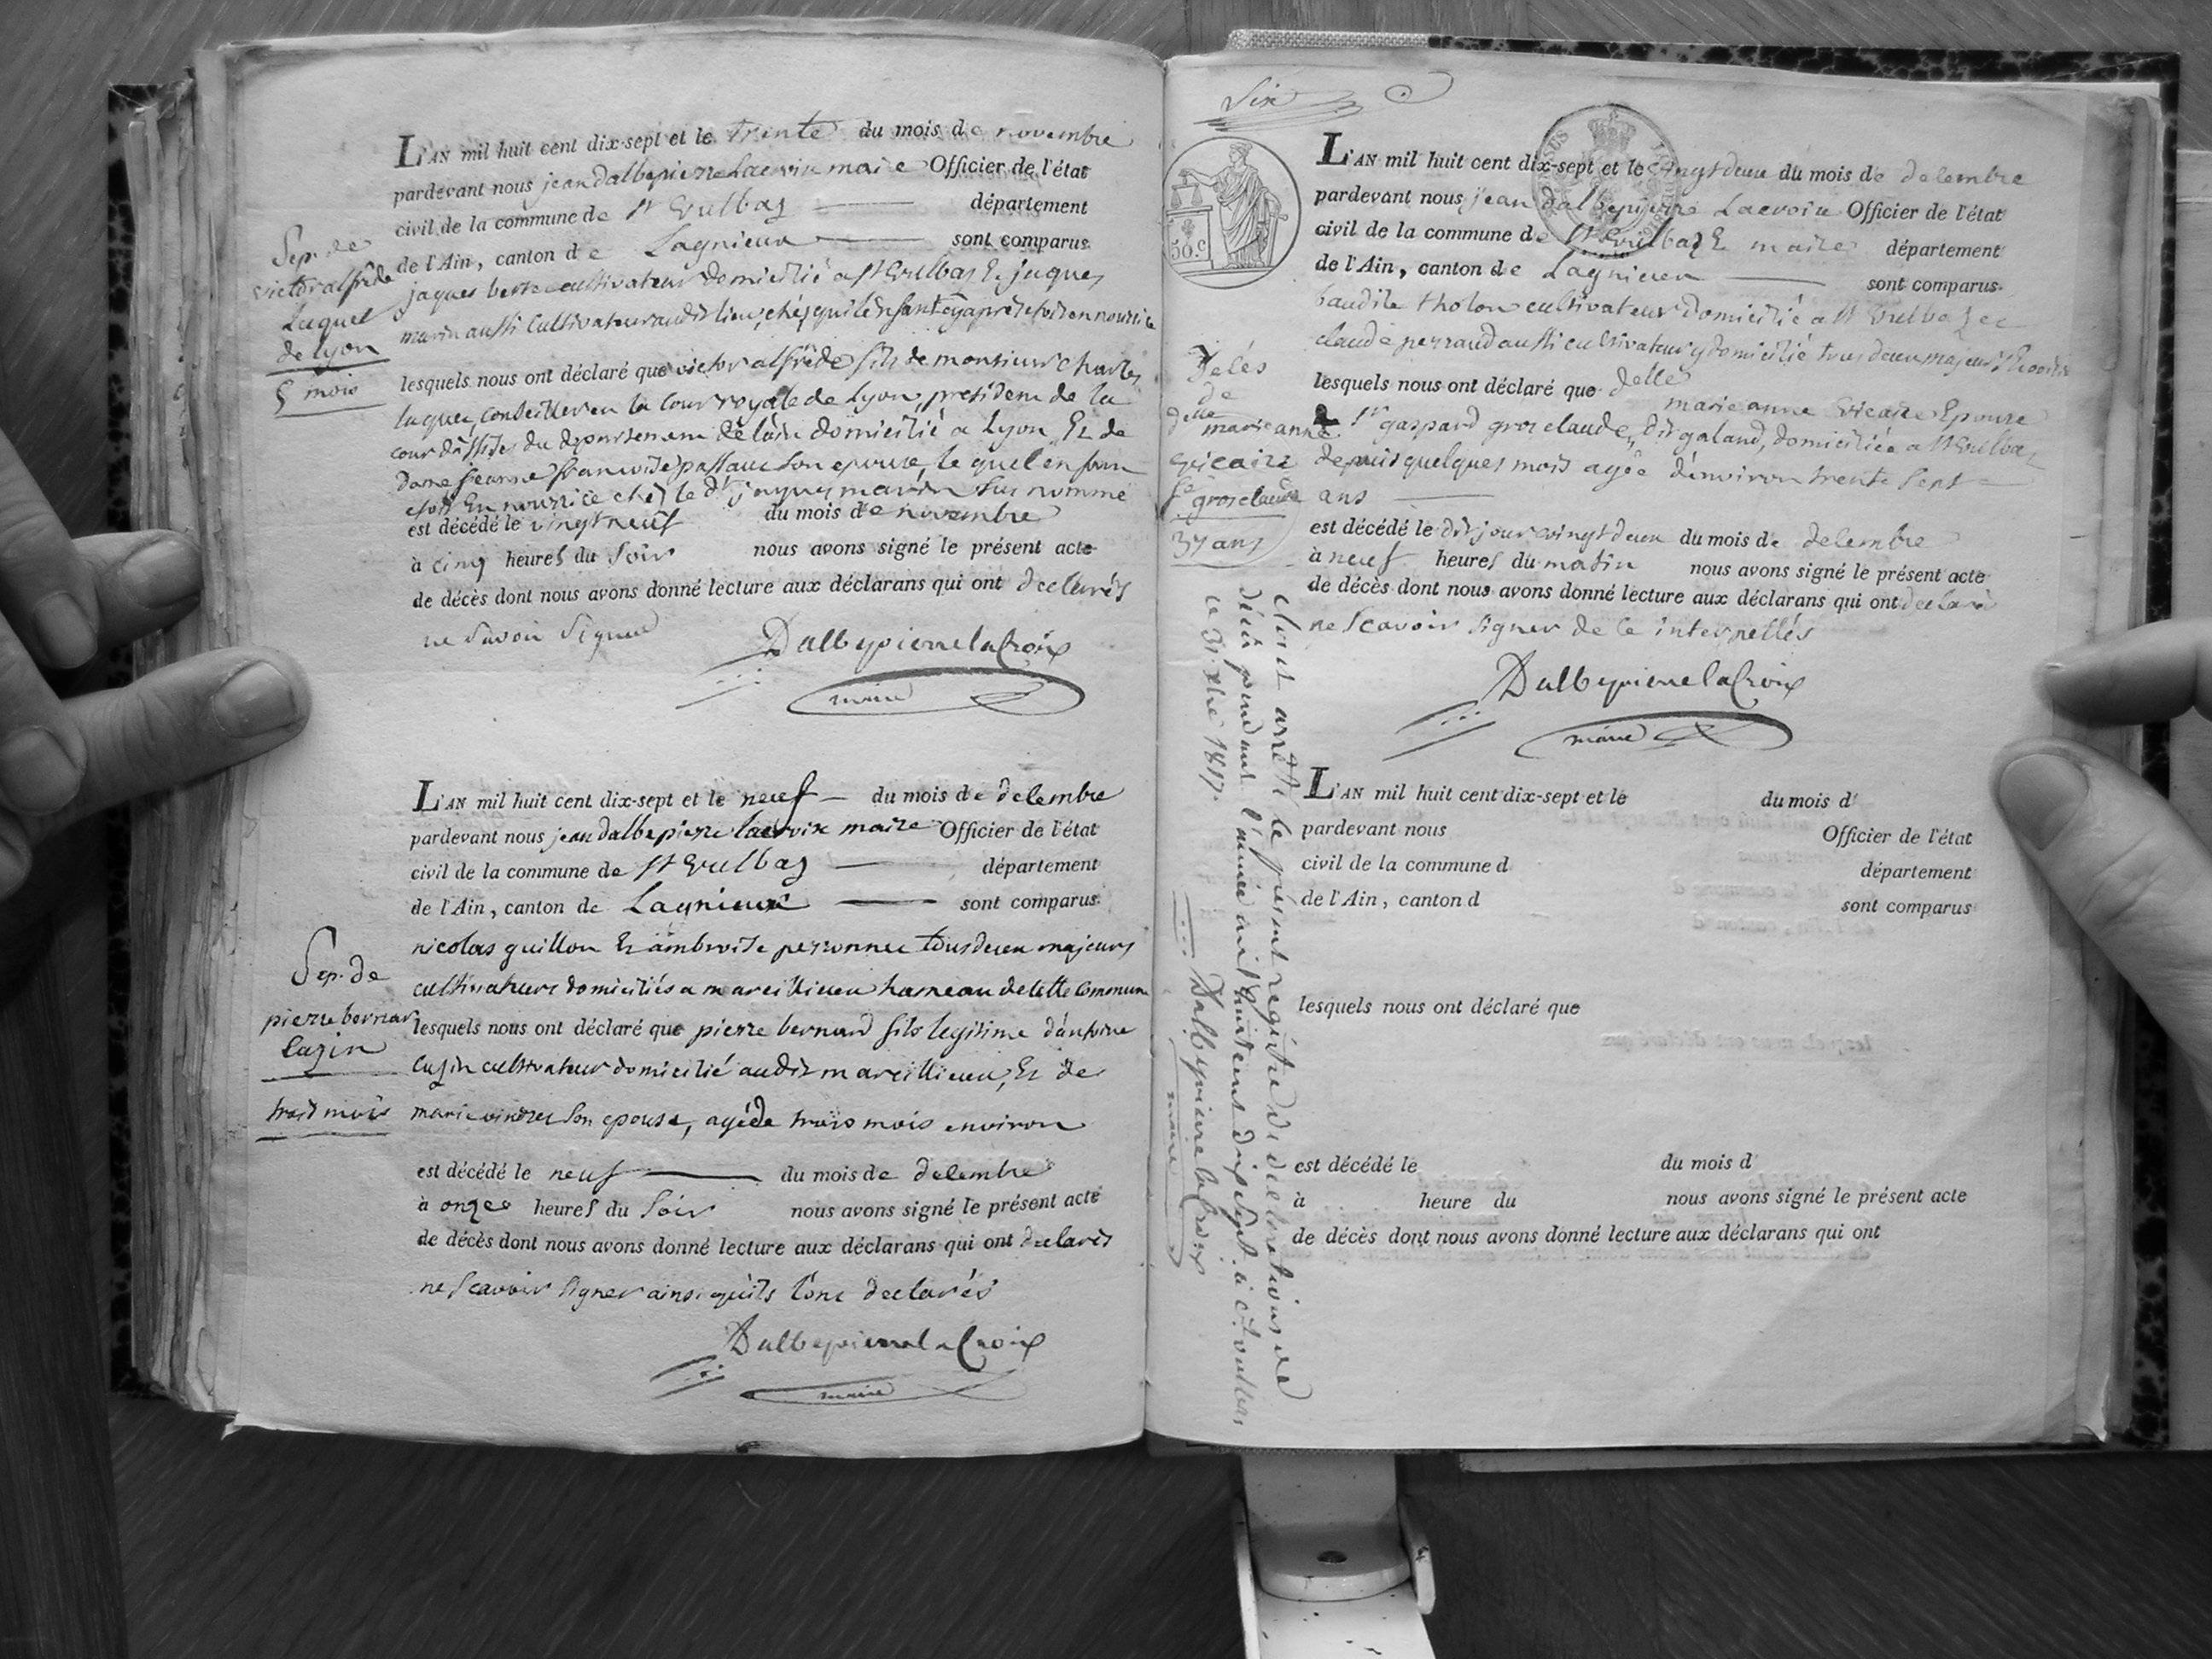 L'AN mil huit cent dix-sept et le trente du mois de novembre
pardevant nous jean dalbepierre Lacroix maire Officier de l'état
civil de la commune de St Vulbas département
de l'Ain, canton de Lagnieux sont comparus
jaques cultivateur domicilié a St Vulbas Et jaques
marin aussi Cultivateur audit lieu, chéz qui lenfant cy après etoit en nourrice
Sep. de
victor alfrède
Luquet
de Lyon
5 mois
lesquels nous ont déclaré que victor alfrède fils de monsieur Charles
luquet, Conseiller en la Cour royale de Lyon, president de la
cour dassises du departement de lain domicilié a Lyon, Et de
dame jeanne francoise passaut son epouse, le quel enfant
etoit En nourrice chéz le dt jaques marin sus nommé
est décédé le vingt neuf du mois de novembre
à cinq heures du Soir nous avons signé le présent acte
de décès dont nous avons donné lecture aux déclarans qui ont declarés
ne Savoir Signer
Dalbepierre laCroix
maire
L'AN mil huit cent dix-sept et le neuf du mois de decembre
pardevant nous jean dalbepierre lacroix maire Officier de l'état
civil de la commune de St Vulbas département
de l'Ain, canton de Lagnieux sont comparus
nicolas guillon Et ambroise peronnet tous deux majeurs
cultivateurs domiciliés a marcillieux hameau de cette Commune
Sep. de
pierre bernar
Cuzin
trois mois
lesquels nous ont déclaré que pierre bernard fils legitime d'antoine
cuzin cultivateur domicilié audit marcillieux, Et de
marie son epouse, agé de trois mois environ
est décédé le neuf du mois de decembre
à onze heures du Soir nous avons signé le présent acte
de décès dont nous avons donné lecture aux déclarans qui ont declarés
ne Scavoir signer ainsi qu'ils l'ont declarés
Dalbepierre laCroix
maire
Six
50.c
L'AN mil huit cent dix-sept et le vingt deux du mois de decembre
pardevant nous jean dalbepierre Lacroix Officier de l'état
civil de la commune de St Vulbas Et maire département
de l'Ain, canton de Lagnieux sont comparus
baudile tholon cultivateur domicilié a St Vulbas et
claude perraud aussi cultivateur y domicilié tous deux majeurs
Décés
de
delle
marie anne
vicaire
fe groscla
37 ans
lesquels nous ont déclaré que delle marie anne vicaire Epouse
Sr gaspard grosclaude, dit galand, domiciliée a St Vulbas
depuis quelques mois agée d'environ trente Sept
ans
est décédé le dit jour vingt deux du mois de decembre
à neuf heures du matin nous avons signé le présent acte
de décès dont nous avons donné lecture aux déclarans qui ont declaré
ne Scavoir Signer de ce interpellés
Dalbepierre laCroix
maire
clos et arrêté le présent registre de declarations de
décès pendant l'année mil huit cent dix Sept. à St Vulbas
ce 31 xbre 1817.
Dalbepierre laCroix
maire
L'AN mil huit cent dix-sept et le du mois d
pardevant nous Officier de l'état
civil de la commune d département
de l'Ain, canton d sont comparus
lesquels nous ont déclaré que
est décédé le du mois d
à heure du nous avons signé le présent acte
de décès dont nous avons donné lecture aux déclarans qui ont